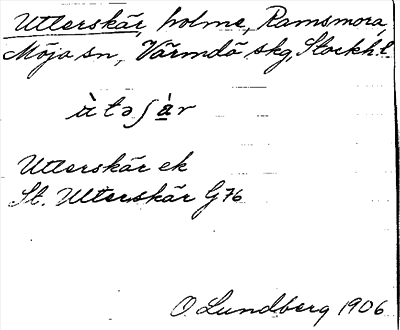 Utterskär, holme, Ramsmora,
Möja sn, Värmdö skg, Stockh. l.
ùtəʃà̱r
Utterskär ek
St. Utterskär G76
O. Lundberg 1906